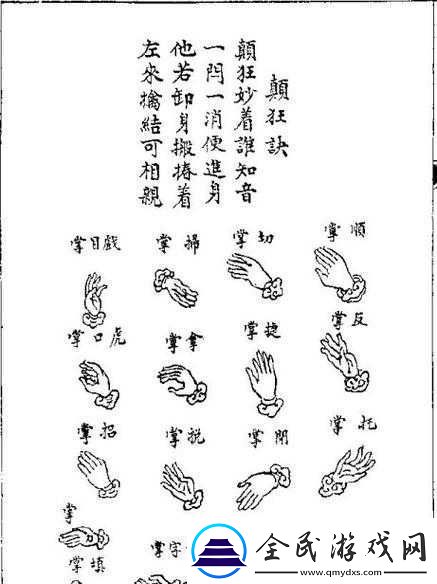 顛狂訣
顛狂妙着誰知音
一閃一消便進身
他若卸身搬樁着
左來擒結可相親
順掌
切掌
掃掌
戲目掌
反掌
捷掌
拿掌
虎口掌
托掌
閉掌
掌
招掌
掌
字掌
填掌
全民游戏网
www.qmydxs.com